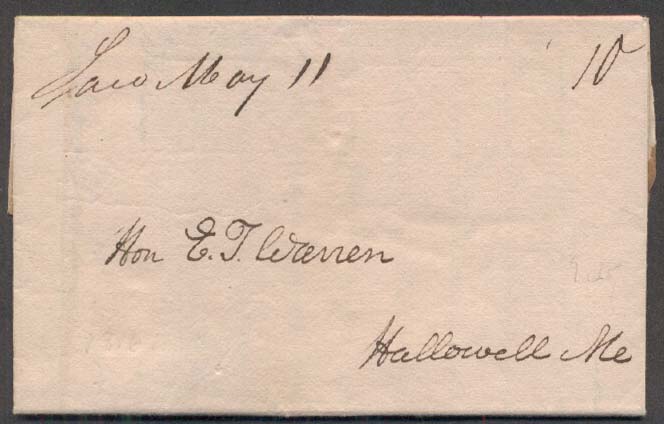 Saco May 11 10
Hon E. T. Warren
Hallowell Me